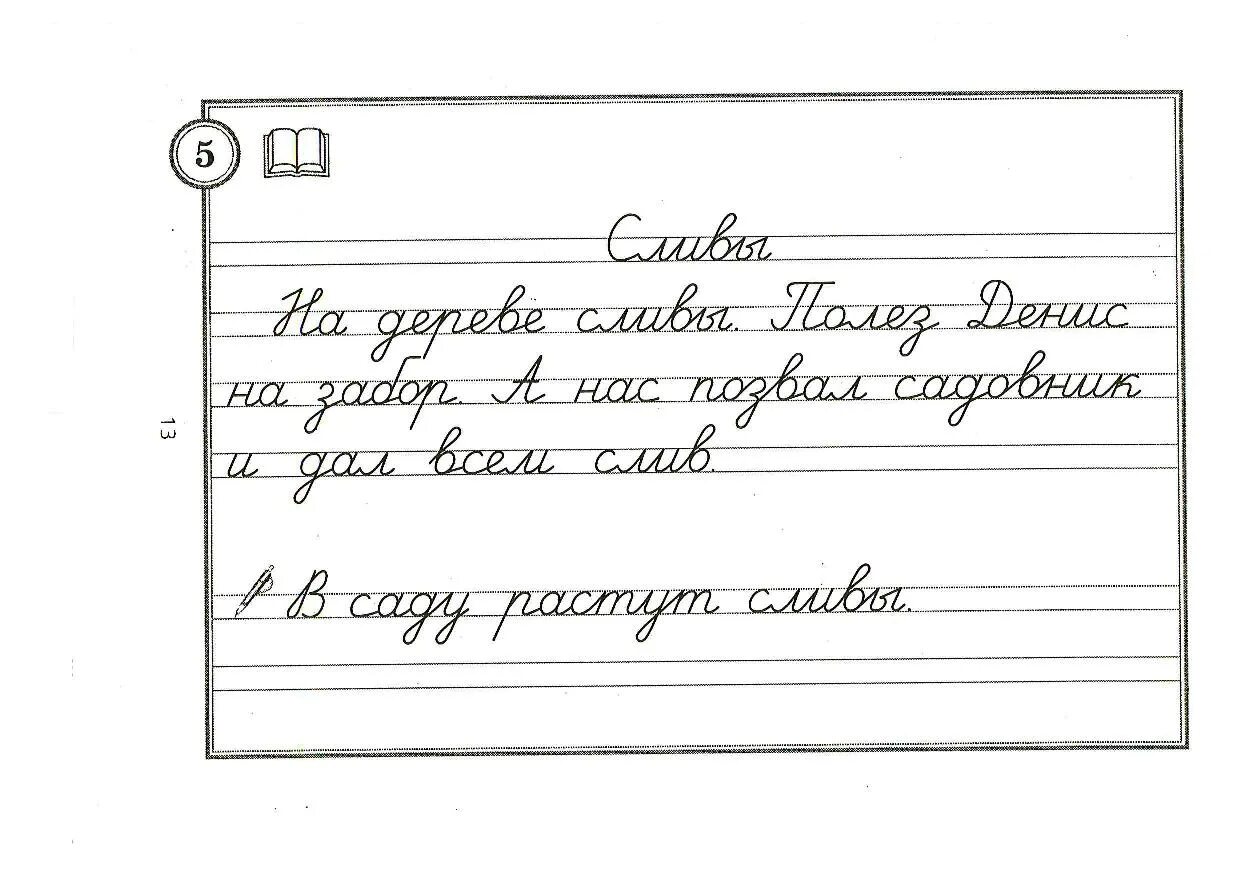 5
Сливы
На дереве сливы. Полез Денис
на забор. А нас позвал садовник
и дал всем слив.
В саду растут сливы.
13